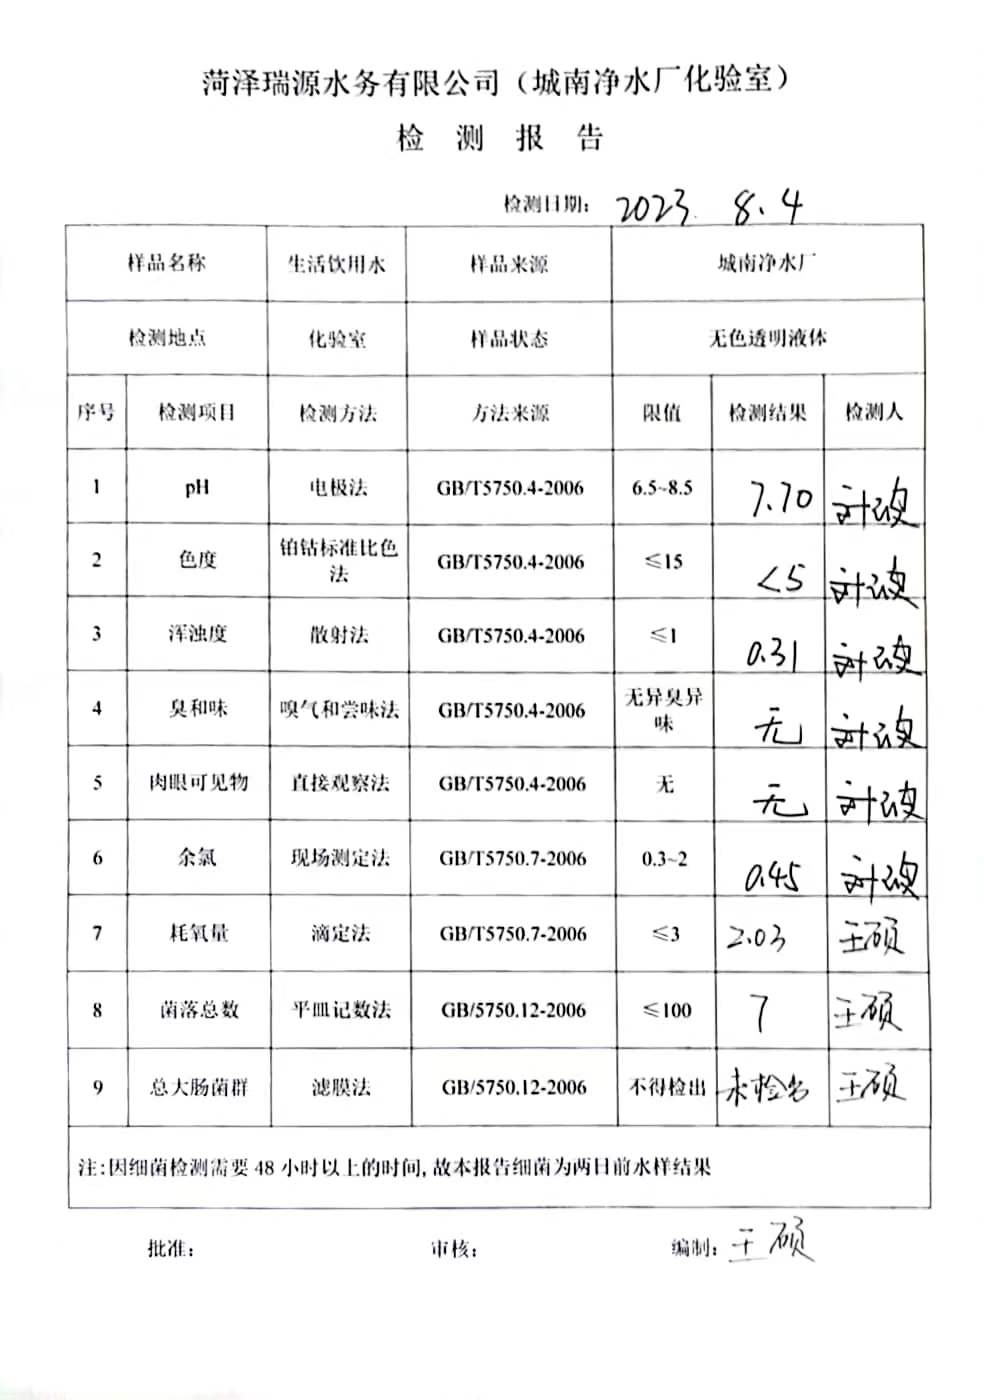 菏泽瑞源水务有限公司（城南净水厂化验室）
检 测 报 告
检测日期： 2023. 8.4
样品名称 生活饮用水 样品来源 城南净水厂
检测地点 化验室 样品状态 无色透明液体
序号 检测项目 检测方法 方法来源 限值 检测结果 检测人
1 pH 电极法 GB/T5750.4-2006 6.5~8.5 7.70
2 色度 铂钴标准比色法 GB/T5750.4-2006 ≤15 <5
3 浑浊度 散射法 GB/T5750.4-2006 ≤1 0.31
4 臭和味 嗅气和尝味法 GB/T5750.4-2006 无异臭异味 无
5 肉眼可见物 直接观察法 GB/T5750.4-2006 无 无
6 余氯 现场测定法 GB/T5750.7-2006 0.3~2 0.45
7 耗氧量 滴定法 GB/T5750.7-2006 ≤3 2.03 王硕
8 菌落总数 平皿记数法 GB/5750.12-2006 ≤100 7 王硕
9 总大肠菌群 滤膜法 GB/5750.12-2006 不得检出 未检出 王硕
注：因细菌检测需要 48 小时以上的时间，故本报告细菌为两日前水样结果
批准： 审核： 编制： 王硕